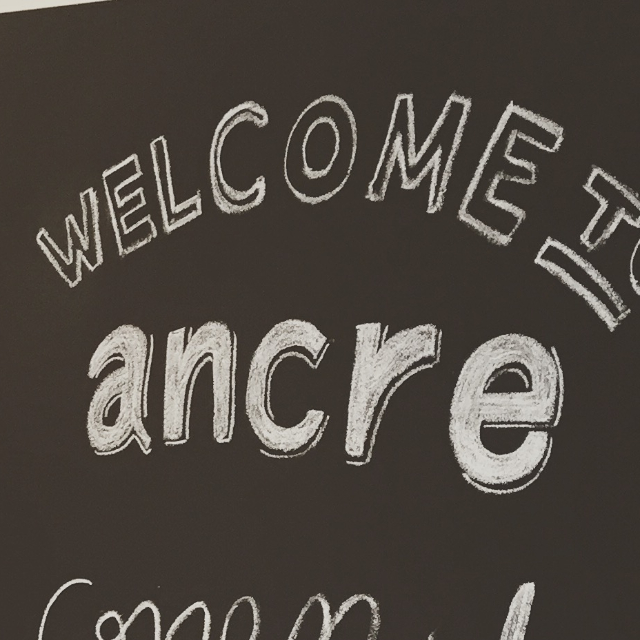 WELCOME TO
ancre